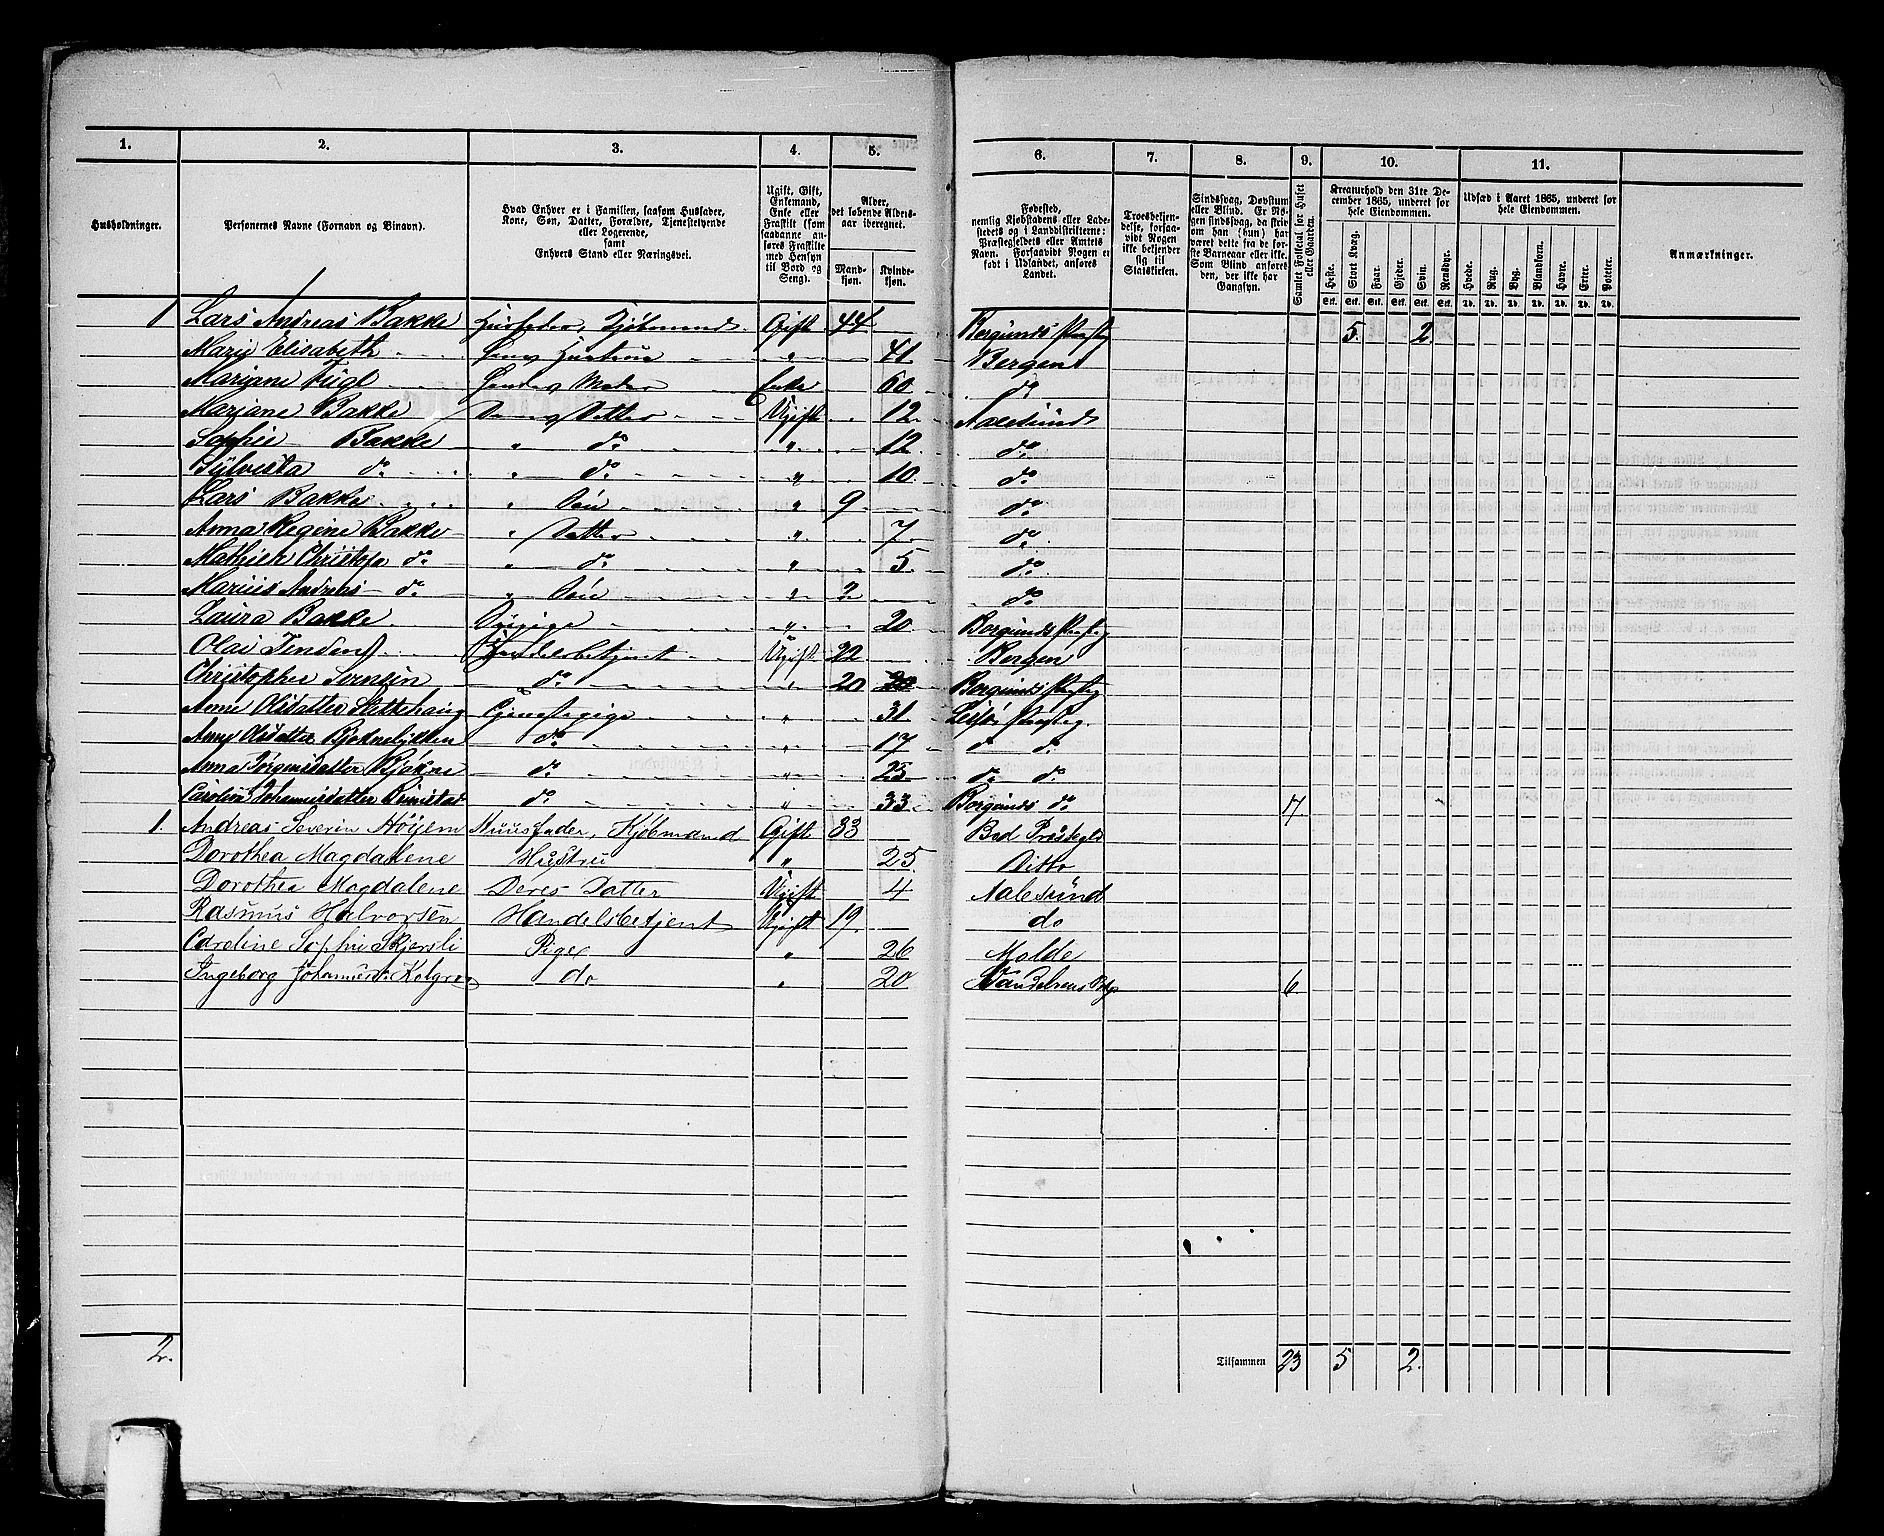 1. 2. 3. 4. 5. 6. 7. 8. 9. 10. 11.
Husholdninger.
Personernes Navne (Fornavn og Binavn).
Hvad Enhver er i Familien, saasom Husfader,
Kone, Søn, Datter, Forældre, Tjenestetyende
eller Logerende,
samt
Enhvers Stand eller Næringsvei.
Ugift, Gift,
Enkemand,
Enke eller
Fraskilt (som
saadanne an-
føres Fraskilte
med Hensyn
til Bord og
Seng).
Alder,
det løbende Alders-
aar iberegnet.
Mand-
kjøn.
Kvinde-
kjøn.
Fødested,
nemlig Kjøbstadens eller Lade-
stedets og i Landdistrikterne:
Præstegjeldets eller Amtets
Navn. Forsaavidt Nogen er
født i Udlandet, anføres
Landet.
Troesbekjen-
delse, forsaa-
vidt Nogen
ikke bekjender
sig til
Statskirken.
Sindssvag, Døvstum
eller Blind. Er No-
gen sindssvag, da skriv
om han (hun) har
været dette fra de før-
ste Barneaar eller ikke.
Som Blind anføres
den, der ikke har
Gangsyn.
Samlet Folketal for Huset
eller Gaarden.
Kreaturhold den 31te De-
cember 1865, underet for
hele Eiendommen.
Heste. Stort Kvæg. Faar. Gjeder. Svin. Rensdyr.
Udsæd i Aaret 1865, underet for
hele Eiendommen.
Hvede. Rug. Byg. Blandkorn. Havre. Erter. Poteter.
Anmærkninger.
1 Lars Andreas Bakke Husfader, Kjöbmand Gift 44 Borgunds Prstg 5. 2.
Marie Elisabeth Hans Hustrue " 41 Bergen
Mariane Hendes Moder Enke 60 do
Mariane Bakke Datter Ugift 12 Aalesund
Sophie Bakke " do " 12 do
Sylvista do " do " 10 do
Lars Bakke " Sön " 9 do
Anna Regine Bakke " Datter " 7 do
Christofa do " do " 5 do
Marius Andreas do " Sön " 2 do
Laura Bakke " 20 Borgunds Prstg
Olai Jensen Handelsbetjent Ugift 22 Bergen
Christopher do " 20 20 Borgunds Prstg
Anne Olsdatter Tjenestepige " 31 Prstg.
Olsdatter do " 17 do do
Anna Jörgensdatter do " 23 do do
Caroline Johannesdatter do " 33 Borgunds do 17.
1. Andreas Severin Höijem Huusfader, Kjöbmand Gift 33 Bud Præstegld
Dorothea Magdalene Hustru " 25 Ditto
Dorothea Magdalene Deres Datter Ugift 4 Aalesund
Rasmus Halvorsen Handelsbetjent Ugift 19 do
Caroline Sophie Skjersli Pige " 26 Molde
Ingeborg do " 20 6.
2. Tilsammen 23 5 2.